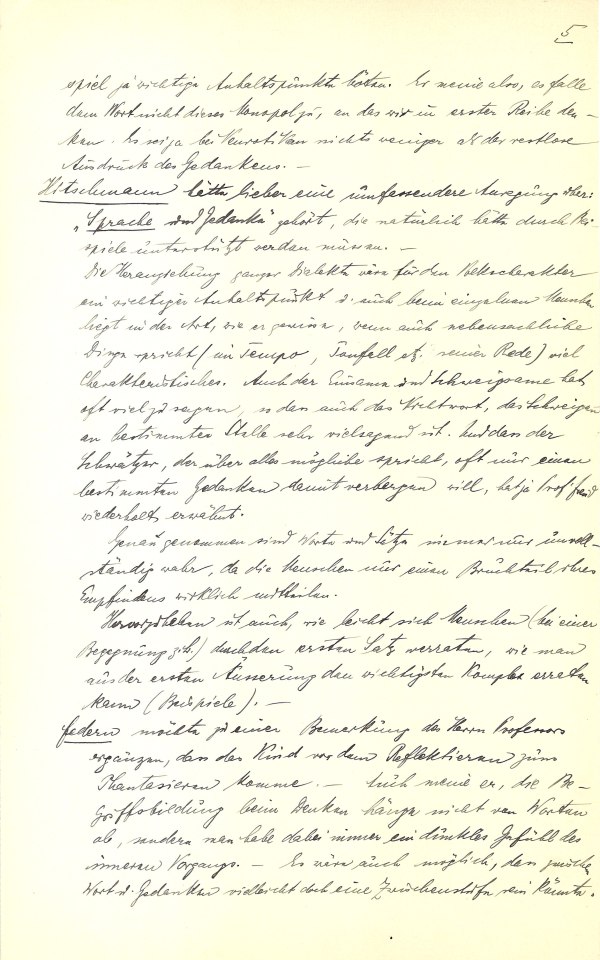 5
spiel ja wichtige Anhaltspunkte böten. Er meine also, es falle
dem Wort nicht dieses Monopol zu, an das wir in erster Reihe den-
ken. Es sei ja bei Neurotikern nichts weniger als der restlose
Ausdruck des Gedankens. –
Hitschmann hätte lieber eine umfassendere Anregung über:
„Sprache und Gedanke" gehört, die natürlich hätte durch Bei-
spiele unterstützt werden müssen. –
Die Heranziehung ganzer Dialekte wäre für den Volkscharakter
ein wichtiger Anhaltspunkt u. auch beim einzelnen Menschen
liegt in der Art, wie er gewisse, wenn auch nebensächliche
Dinge spricht (im Tempo, Tonfall etz. seiner Rede) viel
Charakteristisches. Auch der Einsame und Schweigsame hat
oft viel zu sagen, so dass auch das Nichtwort, das Schweigen
an bestimmter Stelle sehr vielsagend ist. Und dass der
Schwätzer, der über alles mögliche spricht, oft nur einen
bestimmten Gedanken damit verbergen will, hat ja Prof. Freud
wiederholt erwähnt.
Genau genommen sind Worte und Sätze immer nur unvoll-
ständig wahr, da die Menschen nur einen Bruchteil ihres
Empfindens wirklich mitteilen.
Hervorzuheben ist auch, wie leicht sich Menschen (bei einer
Begegnung z. b.) durch den ersten Satz verraten, wie man
aus der ersten Äusserung den wichtigsten Komplex erraten
kann (Beispiele). –
Federn möchte zu einer Bemerkung des Herrn Professors
ergänzen, dass das Kind vor dem Reflektieren zum
Phantasieren komme. – Auch meine er, die Be-
griffsbildung beim Denken hänge nicht von Worten
ab, sondern man habe dabei immer ein dunkles Gefühl des
inneren Vorgangs. – Es wäre auch möglich, dass zwischen
Wort u. Gedanken vielleicht doch eine Zwischenstufe sein könnte.